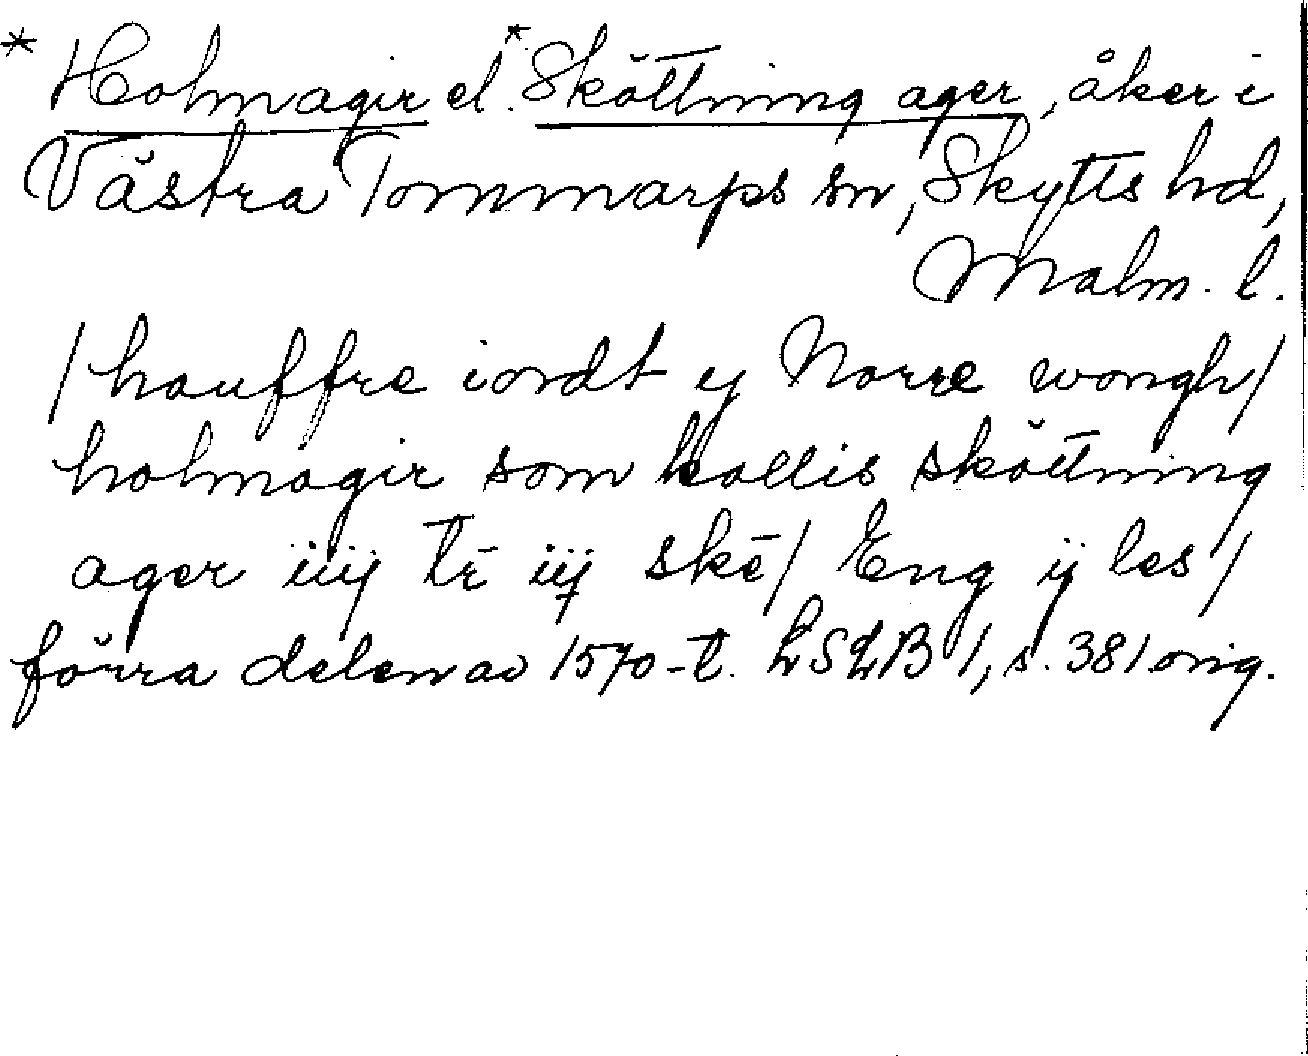 * Holmagir el. * Sköttning ager, åker i
Västra Tommarps sn, Skytts hd,
Malm. l.
/ hauffre iordt y Norre wongh /
holmagir som kallis sköttning
ager iiij tr̄ iij skē / Eng ij les /
förra delen av 1570-t. LSLB 1, s. 381 orig.